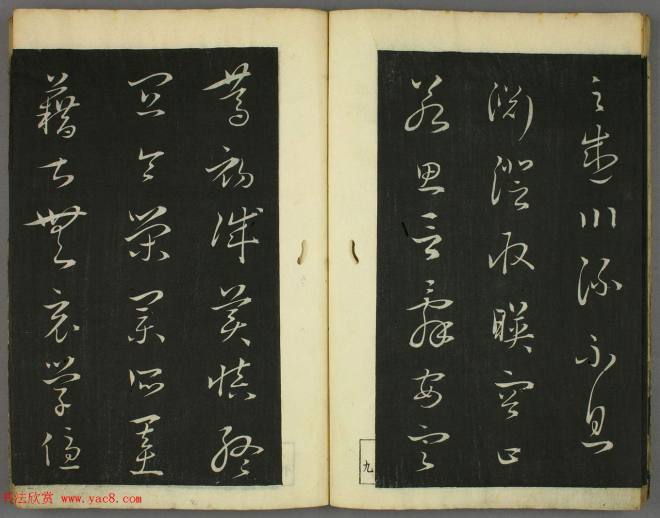 之盛川流不息
淵澄取映容止
若思言辭安定
篤初誠美慎終
宜令榮業所基
籍甚無竟學優
九
书法欣赏 www.yac8.com